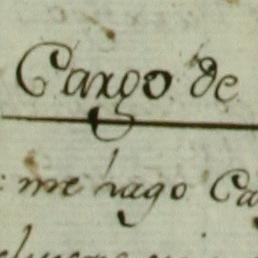 Cargo de
me hago Ca